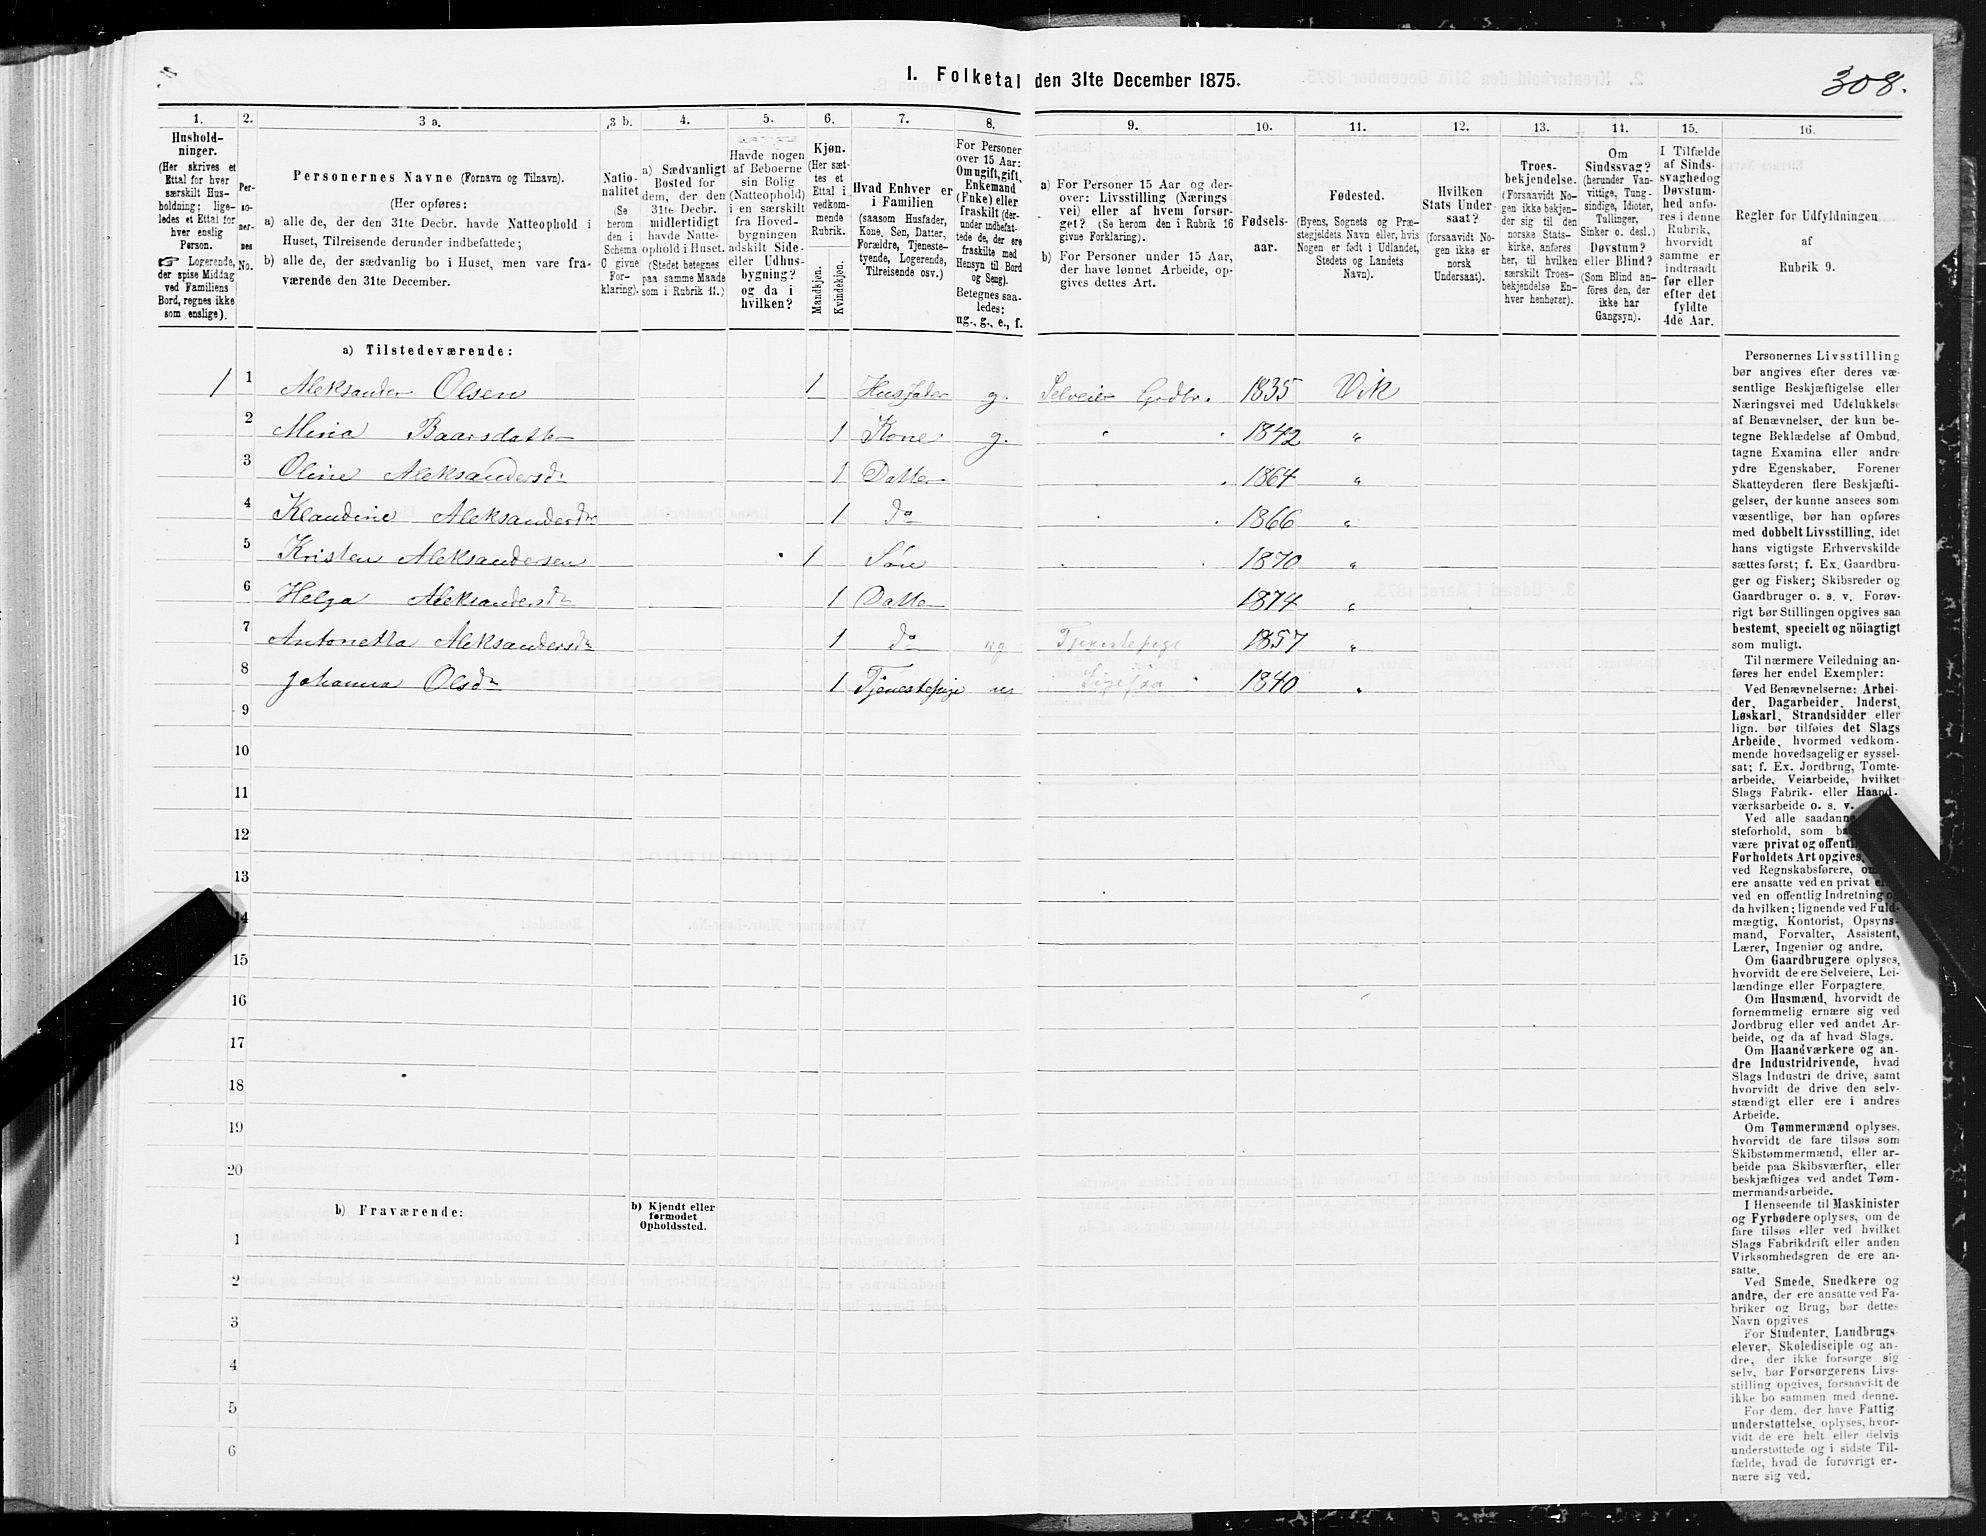 I. Folketal den 31te December 1875.
308.
1. 2. 3 a. 3 b. 4. 5. 6. 7. 8. 9. 10. 11. 12. 13. 14. 15. 16.
Hushold-
ninger.
(Her skrives et
Ettal for hver
særskilt Hus-
holdning; lige-
ledes et Ettal for
hver enslig
Person.
☞ Logerende,
der spise Middag
ved Familiens
Bord, regnes ikke
som enslige).
Per-
so-
ner-
nes
No.
Personernes Navne (Fornavn og Tilnavn).
(Her opføres:
a) alle de, der den 31te Decbr. havde Natteophold i
Huset, Tilreisende derunder indbefattede;
b) alle de, der sædvanlig bo i Huset, men vare fra-
værende den 31te December.
Natio-
nalitet
(Se
herom
den i
Schema
C givne
For-
klaring).
a) Sædvanligt
Bosted for
dem, der den
31te Decbr.
midlertidigt
havde Natte-
ophold i Huset.
(Stedet betegnes
paa samme Maade
som i Rubrik 11.)
Havde nogen
af Beboerne
sin Bolig
(Natteophold)
i en særskilt
fra Hoved-
bygningen
adskilt Side-
eller Udhus-
bygning?
og da i
hvilken?
Kjøn.
(Her sæt-
tes et
Ettal i
vedkom-
mende
Rubrik.
Mandkjøn.
Kvindekjøn.
Hvad Enhver er
i Familien
(saasom Husfader,
Kone, Søn, Datter,
Forældre, Tjeneste-
tyende, Logerende,
Tilreisende osv.)
For Personer
over 15 Aar:
Om ugift, gift,
Enkemand
(Enke) eller
fraskilt (der-
under indbefat-
tede de, der ere
fraskilte med
Hensyn til Bord
og Seng).
Betegnes saa-
ledes:
ug., g., e., f.
a) For Personer 15 Aar og der-
over: Livsstilling (Nærings
vei) eller af hvem forsør-
get? (Se herom den i Rubrik 16
givne Forklaring).
b) For Personer under 15 Aar,
der have lønnet Arbeide, op-
gives dettes Art.
Fødsels-
aar.
Fødested.
(Byens, Sognets og Præ-
stegjeldets Navn eller, hvis
Nogen er født i Udlandet,
Stedets og Landets
Navn).
Hvilken
Stats Under-
saat?
(forsaavidt No-
gen ikke er
norsk
Undersaat).
Troes-
bekjendelse.
(Forsaavidt No-
gen ikke bekjen-
der sig til den
norske Stats-
kirke, anføres
her, til hvilken
særskilt Troes-
bekjendelse En-
hver henhører).
Om
Sindssvag?
(herunder Van-
vittige, Tung-
sindige, Idioter,
Tullinger,
Sinker o. desl.)
Døvstum?
eller Blind?
(Som Blind an-
föres den, der
ikke har
Gangsyn).
I Tilfælde
af Sinds-
svaghed og
Døvstum-
hed anfø-
res i denne
Rubrik,
hvorvidt
samme er
indtraadt
før eller
efter det
fyldte
4de Aar.
Regler for Udfyldningen
af
Rubrik 9.
a) Tilstedeværende:
1 1 Aleksander Olsen 1 Husfader g. Selveier Grdbr. 1835 Vik
2 Mina Baarsdatter 1 Kone g. " 1842 "
3 Oline Aleksandersdr 1 Datter 1864 "
4 Klaudine Aleksandersdr 1 do 1866 "
5 Kristen Aleksandersen 1 Søn 1870 "
6 Helga Aleksandersdr 1 Datter 1874 "
7 Antonetta Aleksandersdr 1 do ug Tjenestepige 1857 "
8 Johanna Olsdr 1 Tjenestepige ug 1840 "
9
10
11
12
13
14
15
16
17
18
19
20
b) Fraværende:
b) Kjendt eller
formodet
Opholdssted.
1
2
3
4
5
6
Personernes Livsstilling
bør angives efter deres væ-
sentlige Beskjæftigelse eller
Næringsvei med Udelukkelse
af Benævnelser, der kun be-
tegne Beklædelse af Ombud,
tagne Examina eller andre
ydre Egenskaber. Forener
Skatteyderen flere Beskjæfti-
gelser, der kunne ansees som
væsentlige, bør han opføres
med dobbelt Livsstilling, idet
hans vigtigste Erhvervskilde
sættes først; f. Ex. Gaardbru-
ger og Fisker; Skibsreder og
Gaardbruger o. s. v. Forøv-
rigt bør Stillingen opgives saa
bestemt, specielt og nöiagtigt
som muligt.
Til nærmere Veiledning an-
føres her endel Exempler:
Ved Benævnelserne: Arbei-
der, Dagarbeider, Inderst,
Løskarl, Strandsidder eller
lign. bør tilføies det Slags
Arbeide, hvormed vedkom-
mende hovedsagelig er syssel-
sat; f. Ex. Jordbrug, Tomte-
arbeide, Veiarbeide, hvilket
Slags Fabrik- eller Haand-
værksarbeide o. s. v.
Ved alle saadanne
steforhold, som
være privat og
Forholdets Art opgives.
ved Regnskabsførere,
ere ansatte ved en privat
ved en offentlig Indretning
da hvilken; lignende ved Fuld-
mægtig, Kontorist, Opsyns-
mand, Forvalter, Assistent,
Lærer, Ingeniør og andre.
Om Gaardbrugere oplyses,
hvorvidt de ere Selveiere, Lei-
lændinge eller Forpagtere.
Om Husmænd, hvorvidt de
fornemmelig ernære sig ved
Jordbrug eller ved andet Ar-
beide, og da af hvad Slags.
Om Haandværkere og an-
dre Industridrivende, hvad
Slags Industri de drive, samt
hvorvidt de drive den selv-
stændigt eller ere i andres
Arbeide.
Om Tømmermænd oplyses,
hvorvidt de fare tilsøs som
Skibstømmermænd, eller ar-
beide paa Skibsværfter, eller
beskjæftiges ved andet Tøm-
mermandsarbeide.
I Henseende til Maskinister
og Fyrbødere oplyses, om de
fare tilsøs eller ved hvilket
Slags Fabrikdrift eller anden
Virksomhedsgren de ere an-
satte.
Ved Smede, Snedkere og
andre, der ere ansatte ved Fa-
briker og Brug, bør dettes
Navn opgives
For Studenter, Landbrugs-
elever, Skoledisciple og an-
dre, der ikke forsørge sig
selv, bør Forsørgerens Livs-
stilling opgives, forsaavidt de
ikke bo sammen med denne.
For dem, der have Fattig-
understøttelse, oplyses, hvor-
vidt de ere helt eller delvis
understøttede og i sidste Til-
fælde, hvad de forøvrigt er-
nære sig ved.